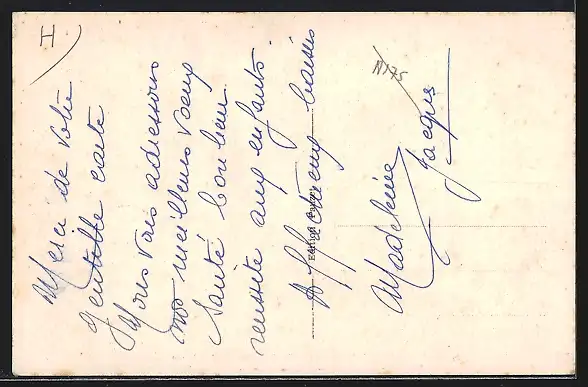 Merci de votre
gentille carte
Nous vous adressons
nos meilleurs voeux
Santé bonheur
reussite aux enfants.
Affectueux baisers
Madeleine
Jacques
I
N175